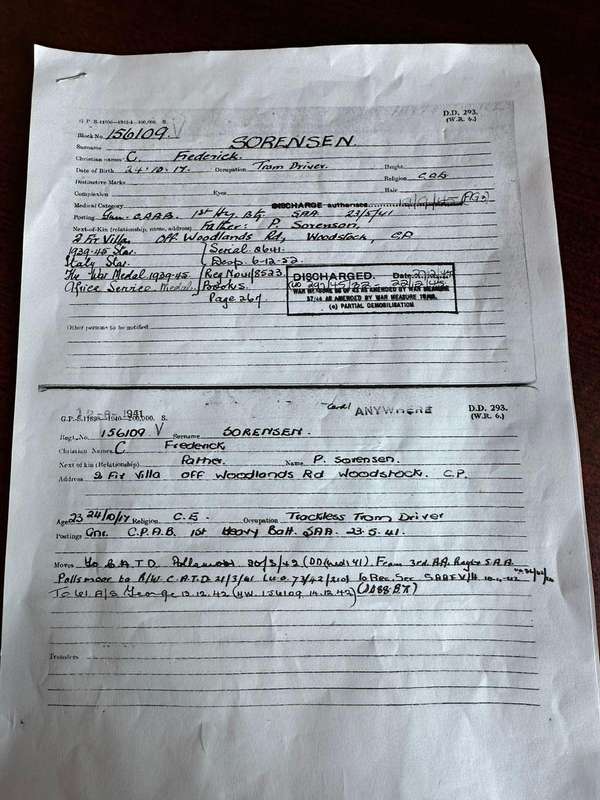 D.D. 293.
(W.R. 6.)
Block No. 156109. V
Surname SORENSEN.
Christian names C. Frederick.
Date of Birth 24·10·17. Occupation Tram Driver. Height
Distinctive Marks Religion C of E
Complexion Eyes Hair
Medical Category DISCHARGE authorised
Posting Gnr. C.P.A.B. 1st Hy. Bty. SAA 23/5/41
Next-of-Kin (relationship, name, address) Father: P. Sorenson,
2 Fir Villa off Woodlands Rd, Woodstock, C.P.
1939-45 Star. Serial
Italy Star. Desp. 6-12-52.
The War Medal 1939-45 Reg No 11/8523
Africa Service Medal. Book
Page 267.
DISCHARGED. Date
WAR MEASURE AS AMENDED BY WAR MEASURE
57/44 AS AMENDED BY WAR MEASURE
(c) PARTIAL DEMOBILISATION
Other persons to be notified
1941
ANYWHERE
D.D. 293.
(W.R. 6.)
Regt. No. 156109 V Surname SORENSEN.
Christian Names C Frederick
Next of kin (Relationship) Father. Name P. Sorensen.
Address 2 Fir Villa off Woodlands Rd Woodstock. C.P.
Age 23 24/10/17 Religion C.E. Occupation Trackless Tram Driver
Postings Gnr. C.P.A.B. 1st Heavy Batt. SAA. 23.5.41.
Moves To C.A.T.D. Pollsmoor 20/3/42 From 3rd. SAA.
Pollsmoor to C.A.T.D.
To George 13.12.42 156109 14.12.42)
Transfers